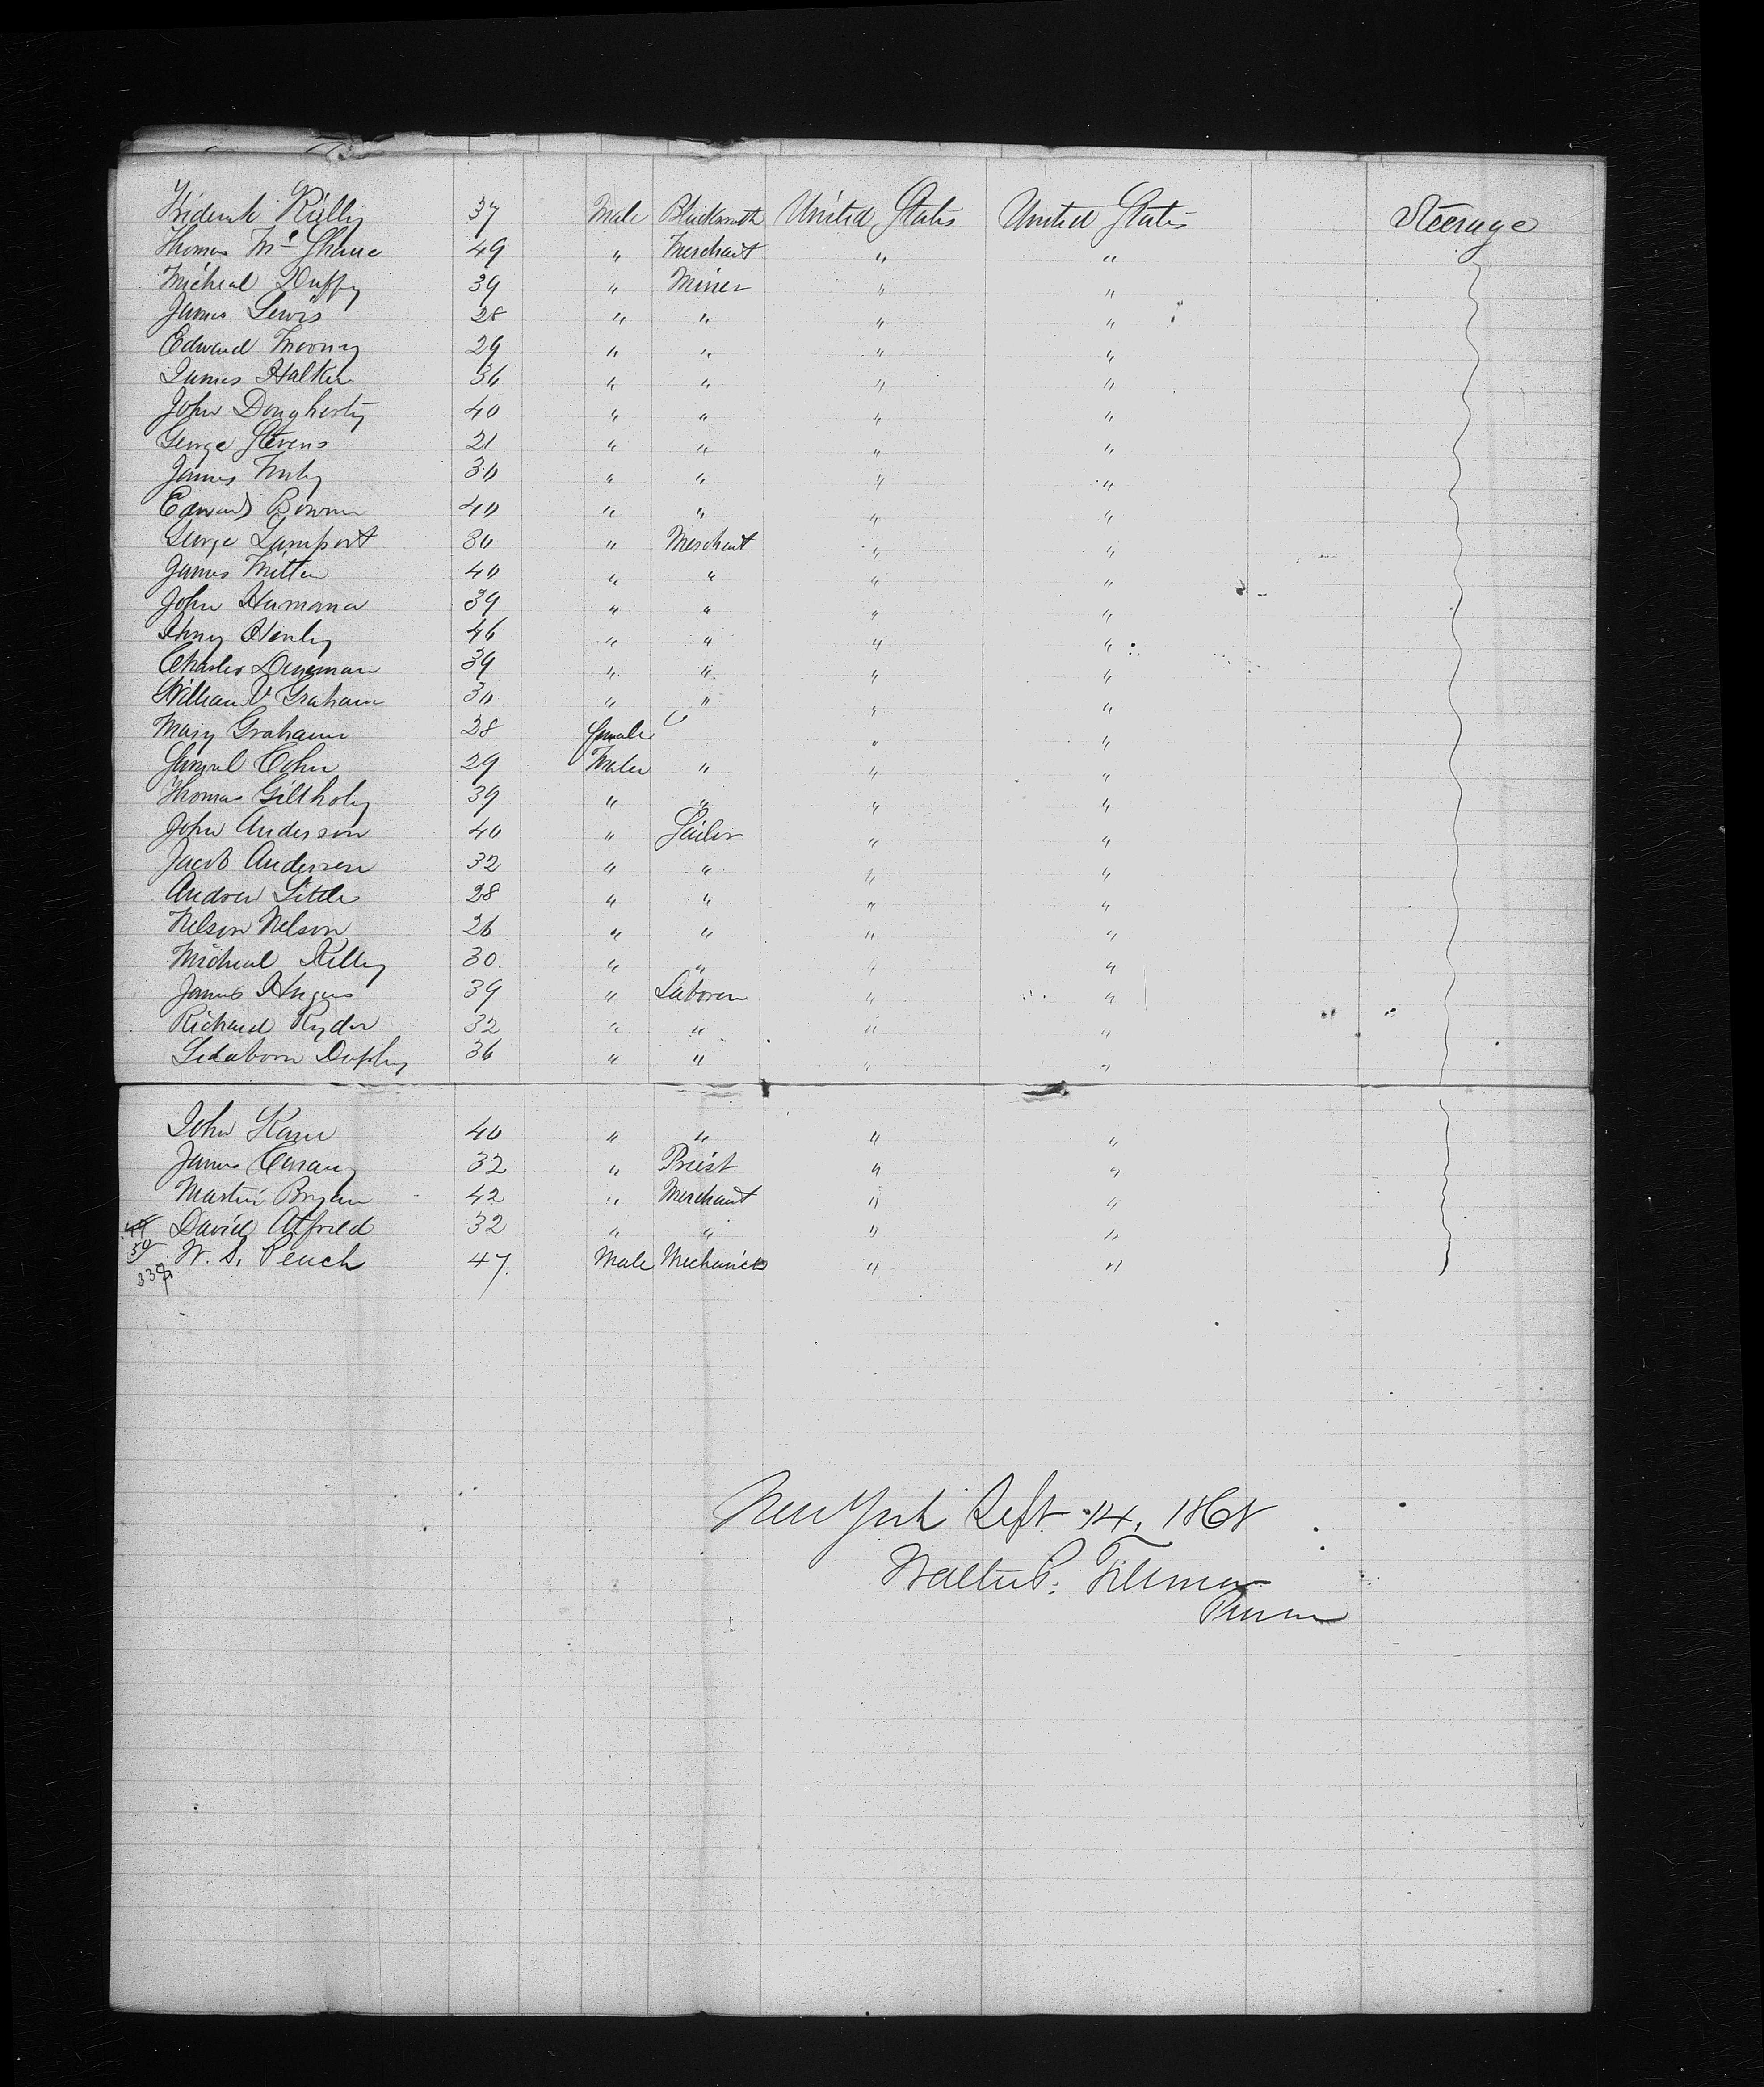 Frederick Rielly 37 Male Blacksmith United States United States Steerage
Thomas Mc Shane 49 " Merchant " "
Micheal Duffy 39 " Miner " "
James Lewis 28 " " " "
Edward Mooney 29 " " " "
James Halker 36 " " " "
John Dougherty 40 " " " "
George Stevens 21 " " " "
James 30 " " " "
Edward Bowman 40 " " " "
George Lamport 30 " Merchant " "
James Mitten 40 " " " "
John Hermana 39 " " " "
Henry Henly 46 " " " "
Charles Deneman 39 " " " "
William V Graham 30 " " " "
Mary Graham 28 female " "
Samuel Cohn 29 Male " " "
Thomas Giltholy 39 " " " "
John Anderson 40 " Sailor " "
Jacob Andersen 32 " " " "
Andrew Little 28 " " " "
Nelson Nelson 26 " " " "
Micheal Killy 30 " " " "
James Hugus 39 " Laborer " "
Richard Ryder 32 " " " "
Duphy 36 " " " "
John Kane 40 " " " "
James 32 " Priest " "
Martin Bryan 42 " Merchant " "
David Atfield 32 " " " "
50 W. S. Peach 47 Male Mechanics " "
337
New York Sept 14, 1868
Walter P. Tillman
Purser